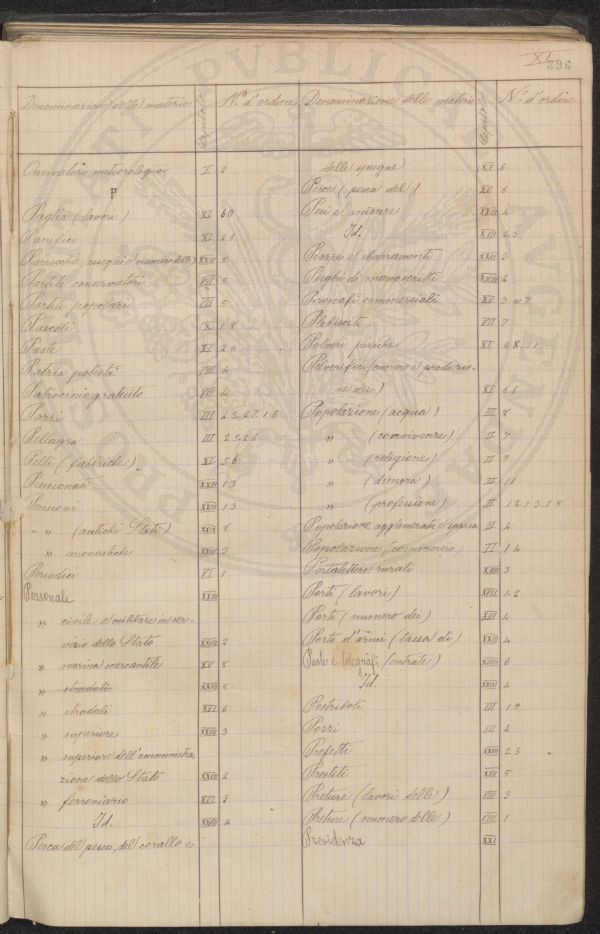 XI
396
Denominazione delle materie Capitolo N.° d'ordine
Osservatori meteorologici I 2
P
Paglia (lavori) XI 60
Panifici XI 28
Parrocchie XXIV 5
Partiti conservatori VII 5
Partiti popolari VII 5
Pascoli X 18
Paste XI 20
Patria potestà VIII 4
Patrocinio gratuito VIII 4
Pazzi III 23.27.16
Pellagra III 25.26
Pelli (fabbriche) XI 56
Pensionati XXIII 13
Pensioni XXIII 13
" (antichi Stati) XXIX 8
" monastiche XXIV 3
Periodici VI 1
Personale XXIII
" civile e militare in ser-
vizio dello Stato XXIII 2
" marina mercantile XV 8
" stradali XXIII 5
" stradali XVI 6
" superiore XXIII 3
" superiore dell'amministra
zione dello Stato XXIII 2
" ferroviario XVI 3
Id. XXIII 4
Pesca del pesce, del corallo e
Denominazione delle materie Capitolo N.° d'ordine
delle spugne XV 6
Pesce (pesca del) XV 6
Pesi e misure XXIII 4
Id. XIII 23
Piazze e sbarramenti XXII 3
Pieghi di manoscritti XVIII 2
Piroscafi commerciali XV 3 a 7
Plebisciti VII 7
Polveri piriche XI
Polverifici (numero e produzio-
ne dei) XI 66
Popolazione (acqua) III 8
" (convivenze) II 7
" (religione) II 9
" (dimora) II 11
" (professione) II 12.13.18
Popolazione agglomerata e sparsa II 4
Popolazione (commercio) II 14
Portalettere rurali XVIII 3
Porti (lavori) XVII 1.2
Porti (numero dei) XIII 4
Porto d'armi (tassa di) XXIII 4
Poste e telegrafi (entrate) XVIII 6
Id. XXIII 4
Postriboli III 19
Pozzi III 4
Prefetti XXIII 23
Prestiti XXI 5
Preture (lavori delle) VIII 3
Preture (numero delle) VIII 1
Previdenza XXI